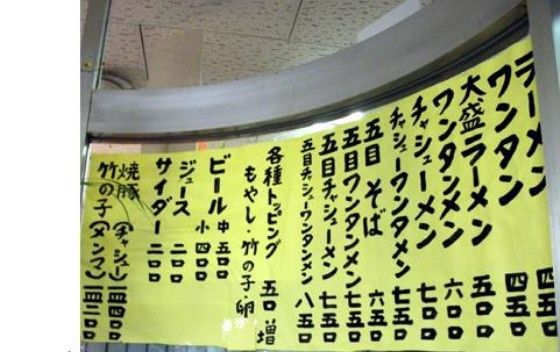 ラーメン 四五〇
ワンタン 四五〇
大盛ラーメン 五〇〇
ワンタンメン 六〇〇
チャシューメン 七〇〇
チャシューワンタンメン 七五〇
五目そば 六五〇
五目ワンタンメン 七五〇
五目チャシューメン 七五〇
五目チャシューワンタンメン 八五〇
各種トッピング 五〇増
もやし・竹の子・卵
ビール 中 五〇〇
小 四〇〇
ジュース 二〇〇
サイダー 二〇〇
焼豚(チャシュー) 一皿四〇〇
竹の子(メンマ) 一皿三〇〇